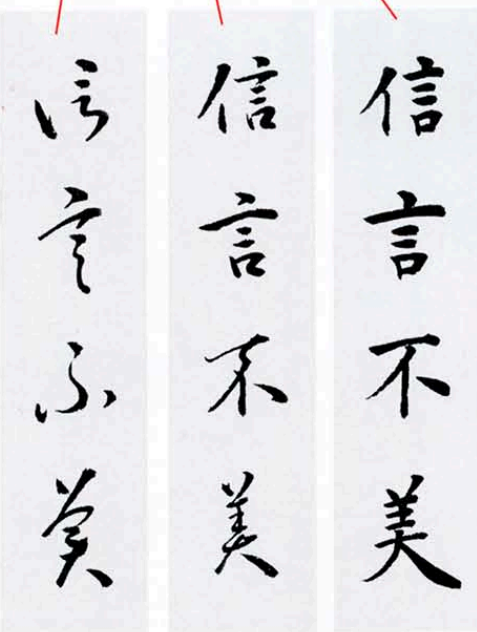 信言不美
信言不美
信言不美